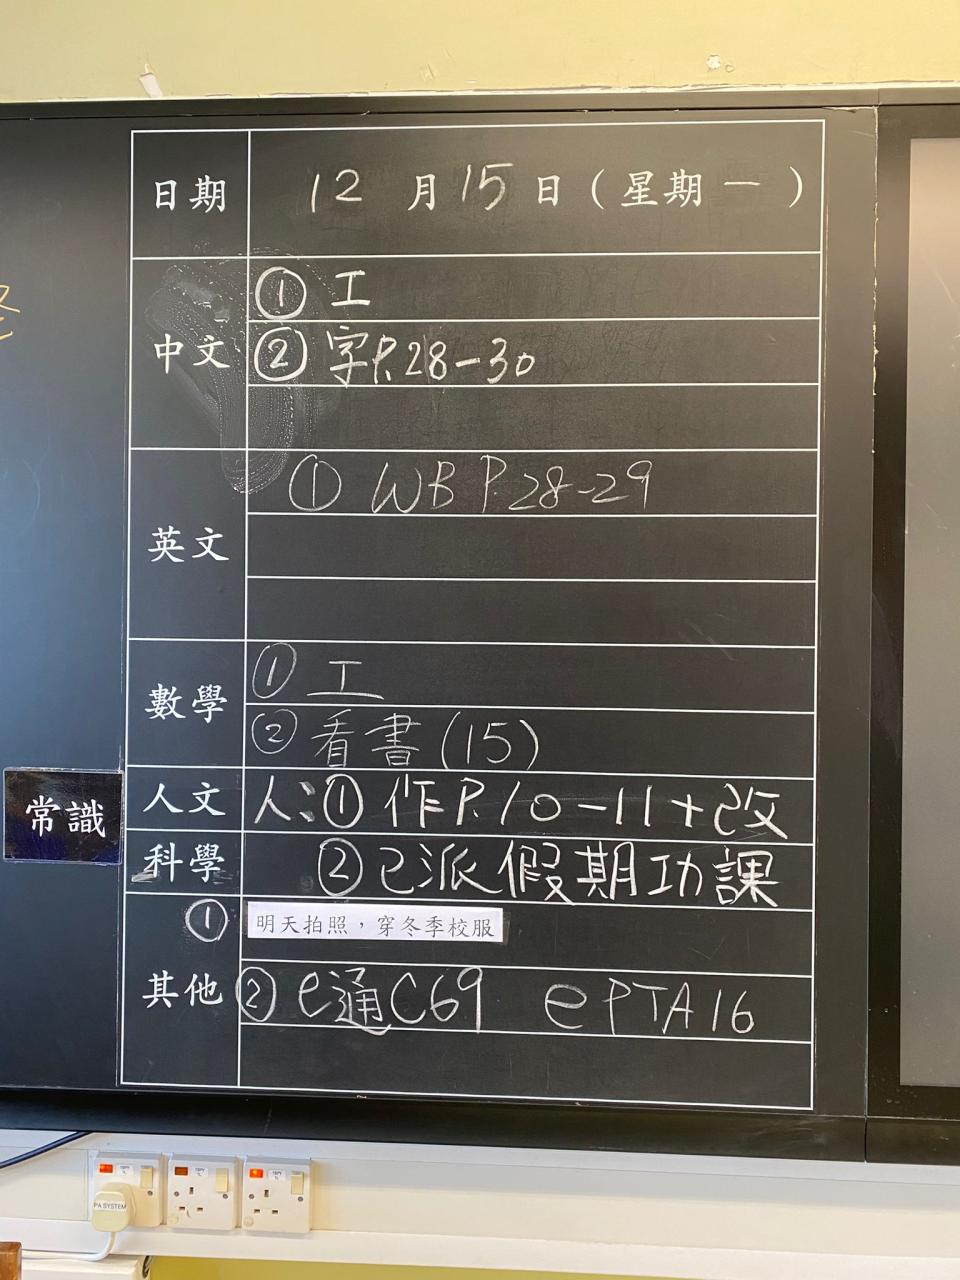 日期 12 月 15 日 ( 星期 一 )
中文 ① 工
② 字P.28-30
英文 ① WB P.28-29
數學 ① 工
② 看書(15)
常識
人文 人:① 作P.10-11+改
科學 ② 已派假期功課
① 明天拍照，穿冬季校服
其他 ② e通C69 ePTA16
PA SYSTEM